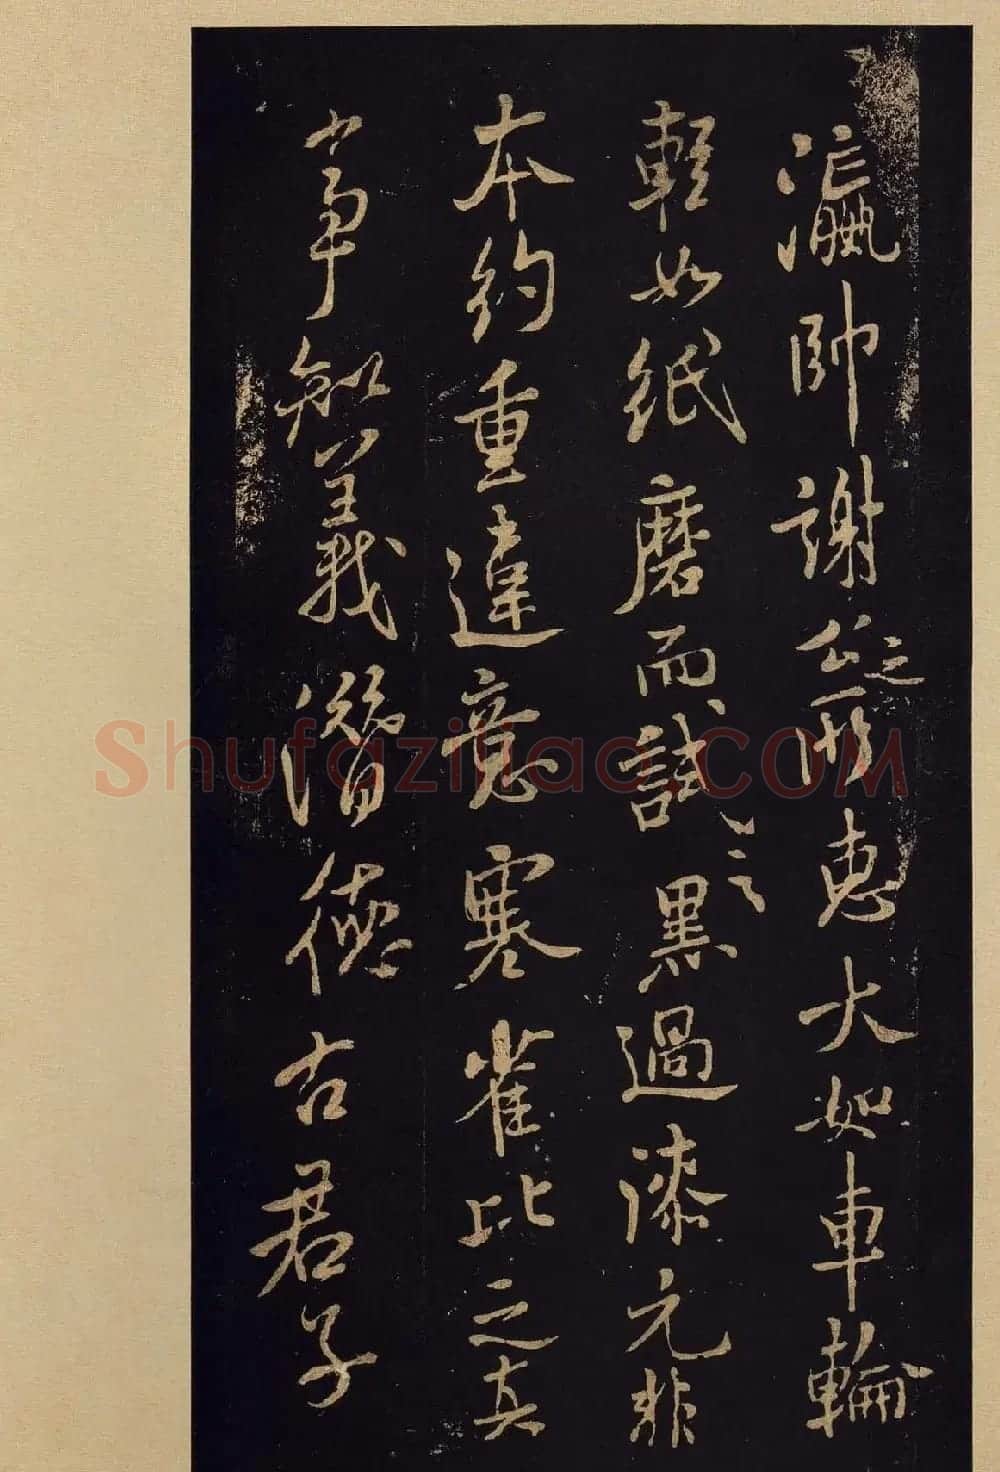 瀛帥謝公之所惠大如車輪
輕如紙磨而試之黑過漆元非
本約重違意寒雀比之真
寧無義潛德古君子
Shufaziliao.COM